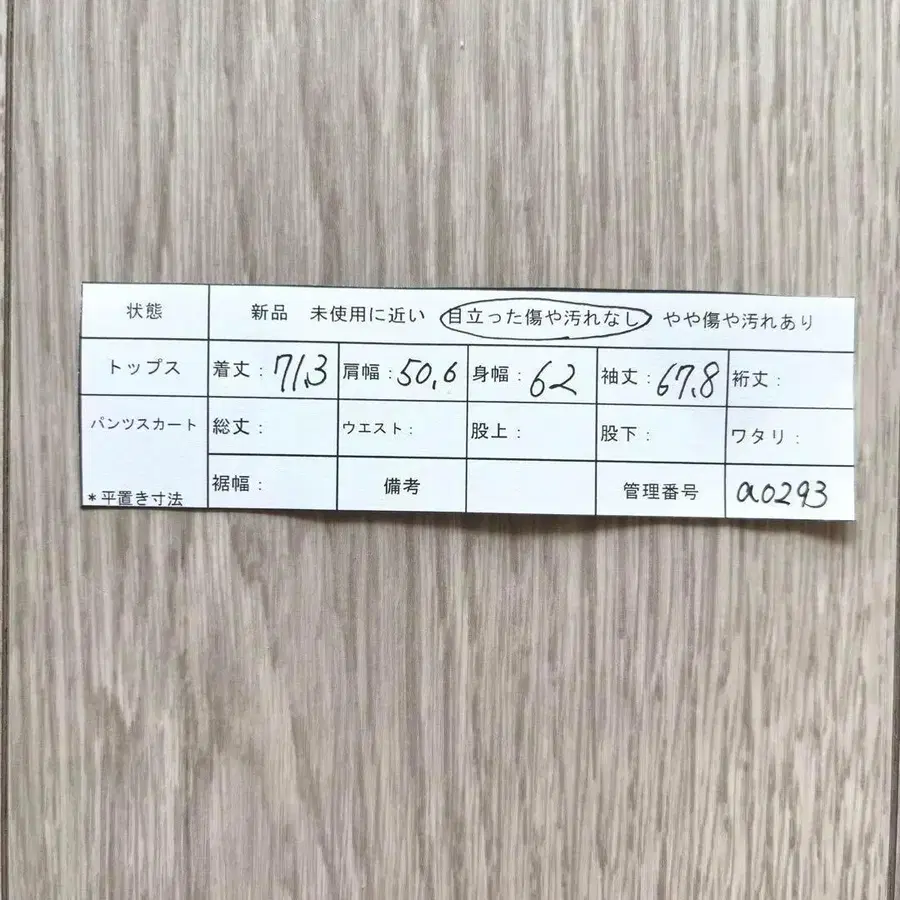 状態 新品 未使用に近い 目立った傷や汚れなし やや傷や汚れあり
トップス 着丈：71.3 肩幅：50.6 身幅：62 袖丈：67.8 裄丈：
パンツスカート 総丈： ウエスト： 股上： 股下： ワタリ：
*平置き寸法 裾幅： 備考 管理番号 a0293